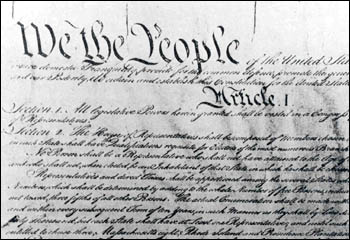 We the People of the United Stat
domestic Tranquility, provide for the common defence, promote the gene
and our Posterity, do ordain and establish this Constitution for the United States
Article. I.
Section. 1. All legislative Powers herein granted shall be vested in a Congress
of Representatives.
Section. 2. The House of Representatives shall be composed of Members chosen
in each State shall have Qualifications requisite for Electors of the most numerous Branch
No Person shall be a Representative who shall not have attained to the Age of
and who shall not, when elected, be an Inhabitant of that State in which he shall be
Representatives and direct Taxes shall be apportioned among the several
Numbers, which shall be determined by adding to the whole Number of free Persons
not taxed, three fifths of all other Persons. The actual Enumeration shall be made
and within every subsequent Term of ten Years, in such Manner as they shall
thirty Thousand, but each State shall have at Least one Representative; and until such
entitled to chuse three, Massachusetts eight, Rhode Island and Providence Plantations